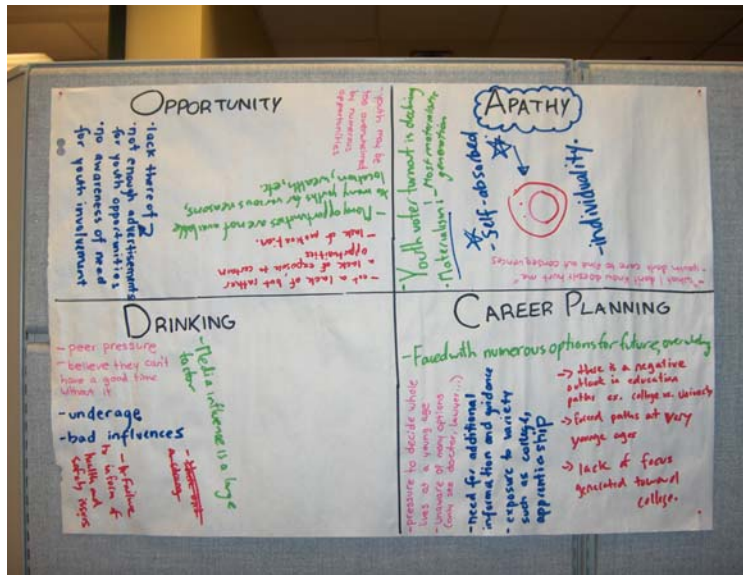 OPPORTUNITY
· lack there of
· not enough advertisements
for youth opportunities
· no awareness of need
for youth involvment
- youth may be
too overwhelmed
by numerous
opportunities
- Many opportunities are not available
to many youths for various reasons,
location, wealth, etc
- not a lack of, but rather
a lack of exposure to certain
opportunities
- lack of motivation.
APATHY
- Youth voter turnout is declining
- Materialism! - Most materialistic
generation
- Self-absorbed
- individuality.
- "What I don't know doesn't hurt me"
- youth don't care to find out consequences
DRINKING
- peer pressure
- believe they can't
have a good time
without it
- underage
- bad influences
- A failure
to inform of
health and
safety issues
- Media influence is a large
factor
CAREER PLANNING
- Faced with numerous options for future,
- pressure to decide whole
lives at a young age
- Unaware of many options
(only see doctor, lawyer...)
- need for additional
information and guidance
- exposure to variety
such as college,
apprenticeship
-> there is a negative
outlook in education
paths ex. college vs. University
-> forced paths at very
younge ages
-> lack of focus
generated toward
college.